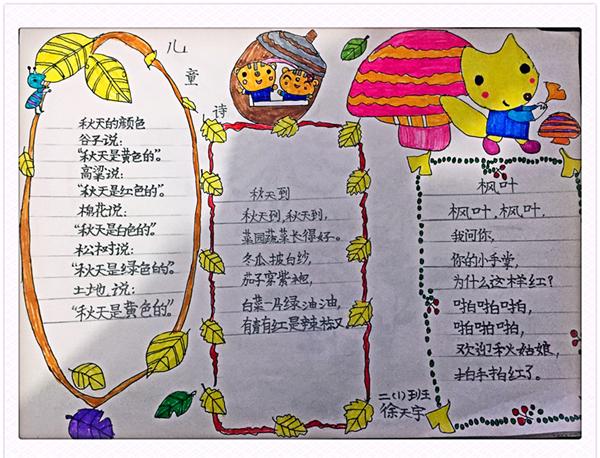 儿
童
诗
秋天的颜色
谷子说:
“秋天是黄色的”。
高粱说:
“秋天是红色的”。
棉花说:
“秋天是白色的”。
松树说:
“秋天是绿色的”。
土地说:
“秋天是黄色的”。
秋天到
秋天到,秋天到,
菜园蔬菜长得好。
冬瓜披白纱,
茄子穿紫袍,
白菜一片绿油油,
有青有红是辣椒
枫叶
枫叶,枫叶,
我问你,
你的小手掌,
为什么这样红?
啪啪啪啪,
啪啪啪啪,
欢迎秋姑娘,
拍手拍红了。
二(1)班
徐天宇